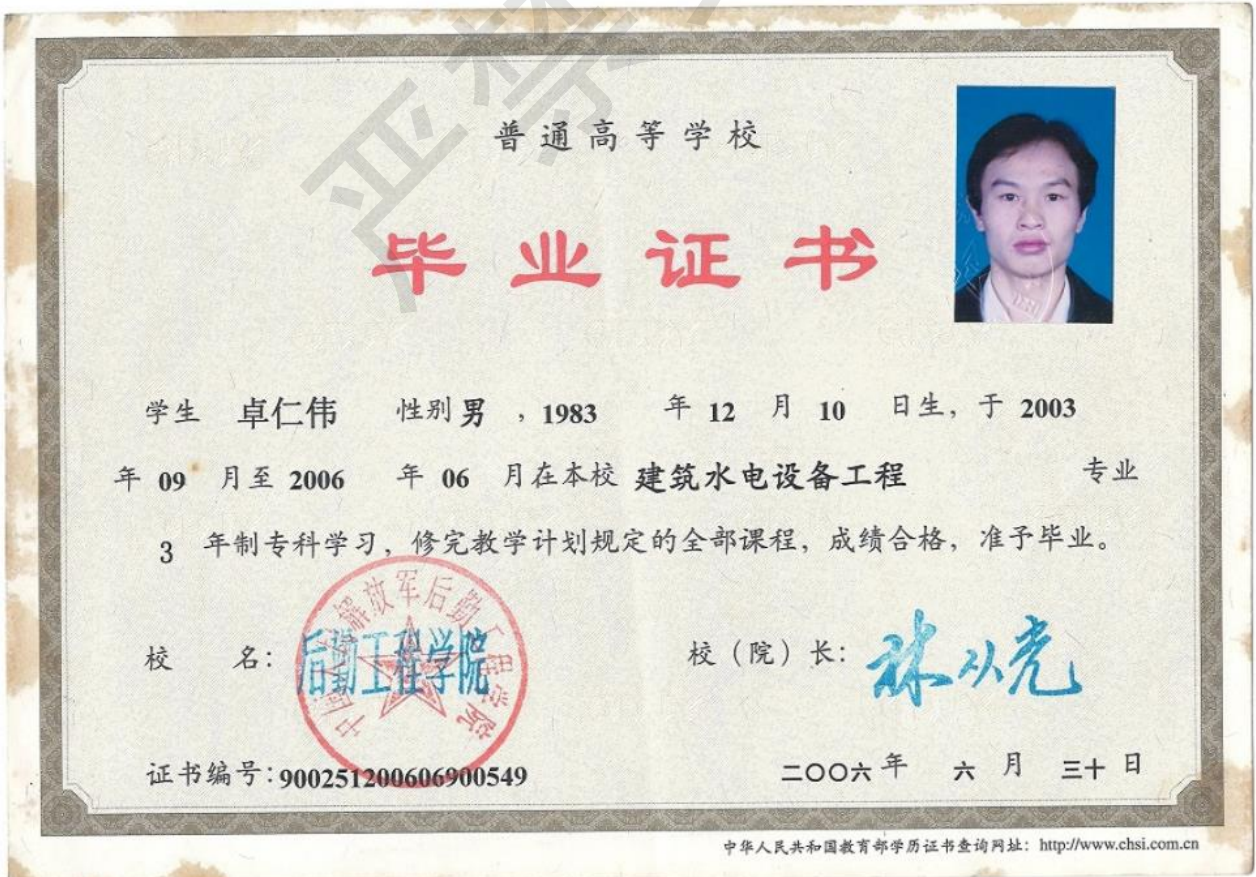 严禁
普通高等学校
毕业证书
学生 卓仁伟 性别 男 , 1983 年 12 月 10 日生, 于 2003
年 09 月至 2006 年 06 月在本校 建筑水电设备工程 专业
3 年制专科学习, 修完教学计划规定的全部课程, 成绩合格, 准予毕业。
中国人民解放军后勤工程学院
校 名: 后勤工程学院 校(院)长: 林从光
证书编号: 900251200606900549 二〇〇六年 六 月 三十 日
中华人民共和国教育部学历证书查询网址: http://www.chsi.com.cn